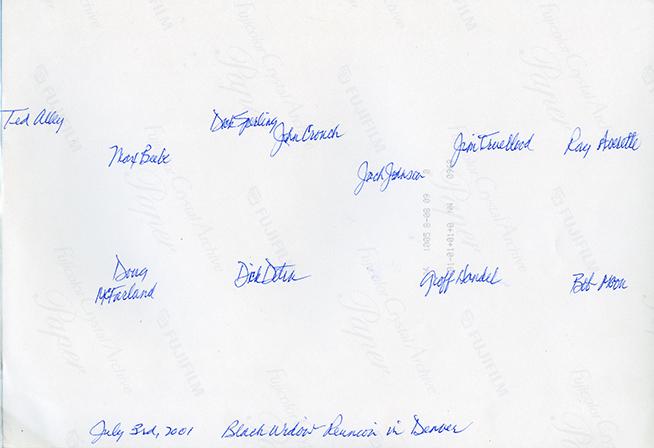 Ted Alley
Dick Sperling
John Crouch
Max Beebe
Jim Trueblood
Ray Averette
Jack Johnson
Doug
McFarland
Geoff Handel
Bob Moon
July 3rd, 2001 Black Widow Reunion in Denver
FUJIFILM
Fujicolor Crystal Archive
Paper